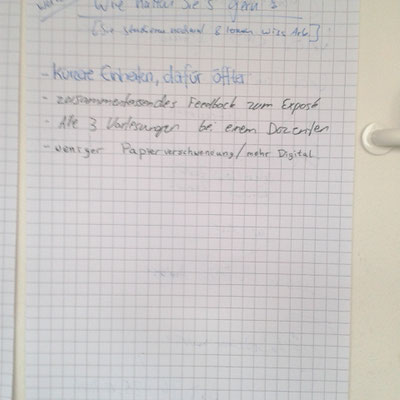 Wie hätten Sie's gern?
[Sie studieren nochmal & lernen wiss Arb.]
- Kürzere Einheiten, dafür öfter
- zusammenfassendes Feedback zum Exposé
- Alle 3 Vorlesungen bei einem Dozenten
- weniger Papierverschwendung/mehr Digital